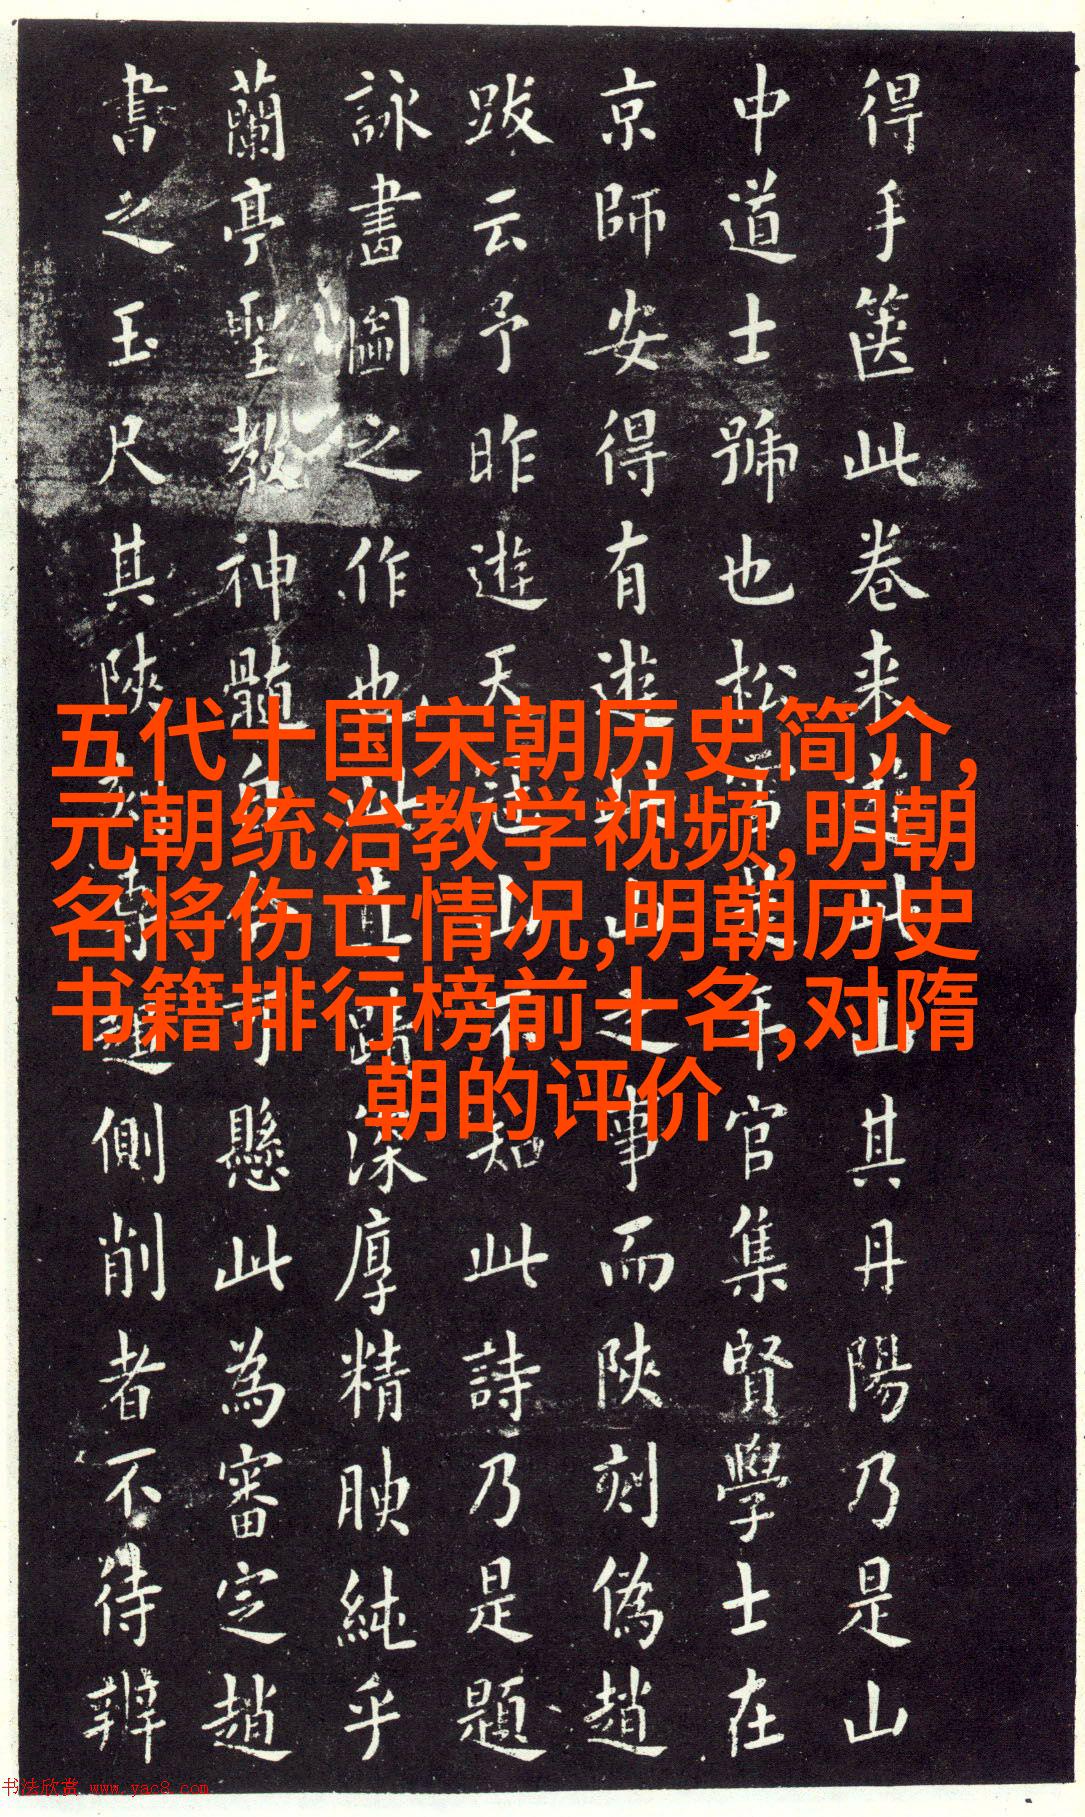 得手篋此卷来此山其丹陽乃是山
中道士號也松年官集賢學士在
京師安得有遊山之事而陝刻偽趙
跋云予昨遊天山不知此詩乃是題
詠畫圖之作也深厚精腴純乎
蘭亭聖教神髓可懸此為審定趙
書之玉尺其陝刻側削者不待辨
五代十国宋朝历史简介,
元朝统治教学视频,明朝
名将伤亡情况,明朝历史
书籍排行榜前十名,对隋
朝的评价
书法欣赏 www.yac8.com